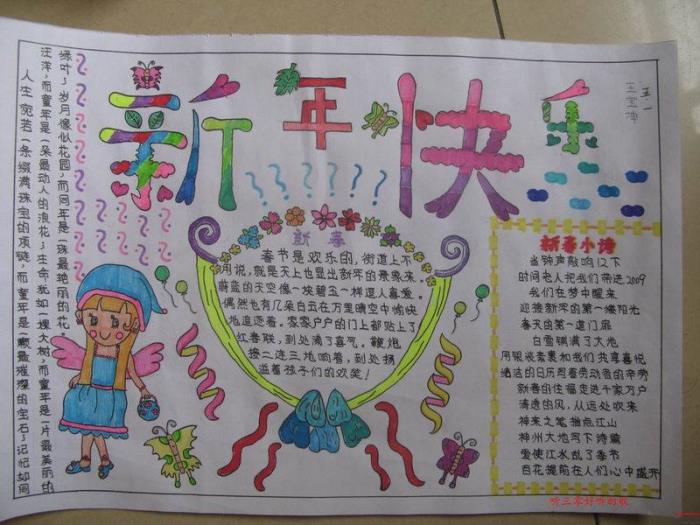 新年快乐
五.一
新春
春节是欢乐的,街道上不
用说,就是天上也显出新年的景象来。
蔚蓝的天空像一块碧玉一样逗人喜爱。
偶然也有几朵白云在万里晴空中愉快
地追逐着。家家户户的门上都贴上了
红春联,到处满了喜气。鞭炮
接二连三地响着,到处扬
溢着孩子们的欢笑!
新春小诗
当钟声敲响12下
时间老人把我们带进2009
我们在梦中醒来
迎接新年的第一缕阳光
春天的第一道门扉
白雪铺满了大地
用银装素裹和我们共尊喜悦
新春的住福走进千家万户
清透的风,从远处吹来
神来之笔指危江山
神州大地写下诗篇
爱使江水乱了季节
百花提前在人们心中盛开
人生宛若一条缀满珠宝的项链,而童年是一颗最璀璨的宝石;记忆如同
汪洋,而童年是一朵最动人的浪花;生命犹如一棵大树,而童年是一片最美丽的
绿叶;岁月像似花园,而同年是一珠最艳丽的花。
听三零好听的歌